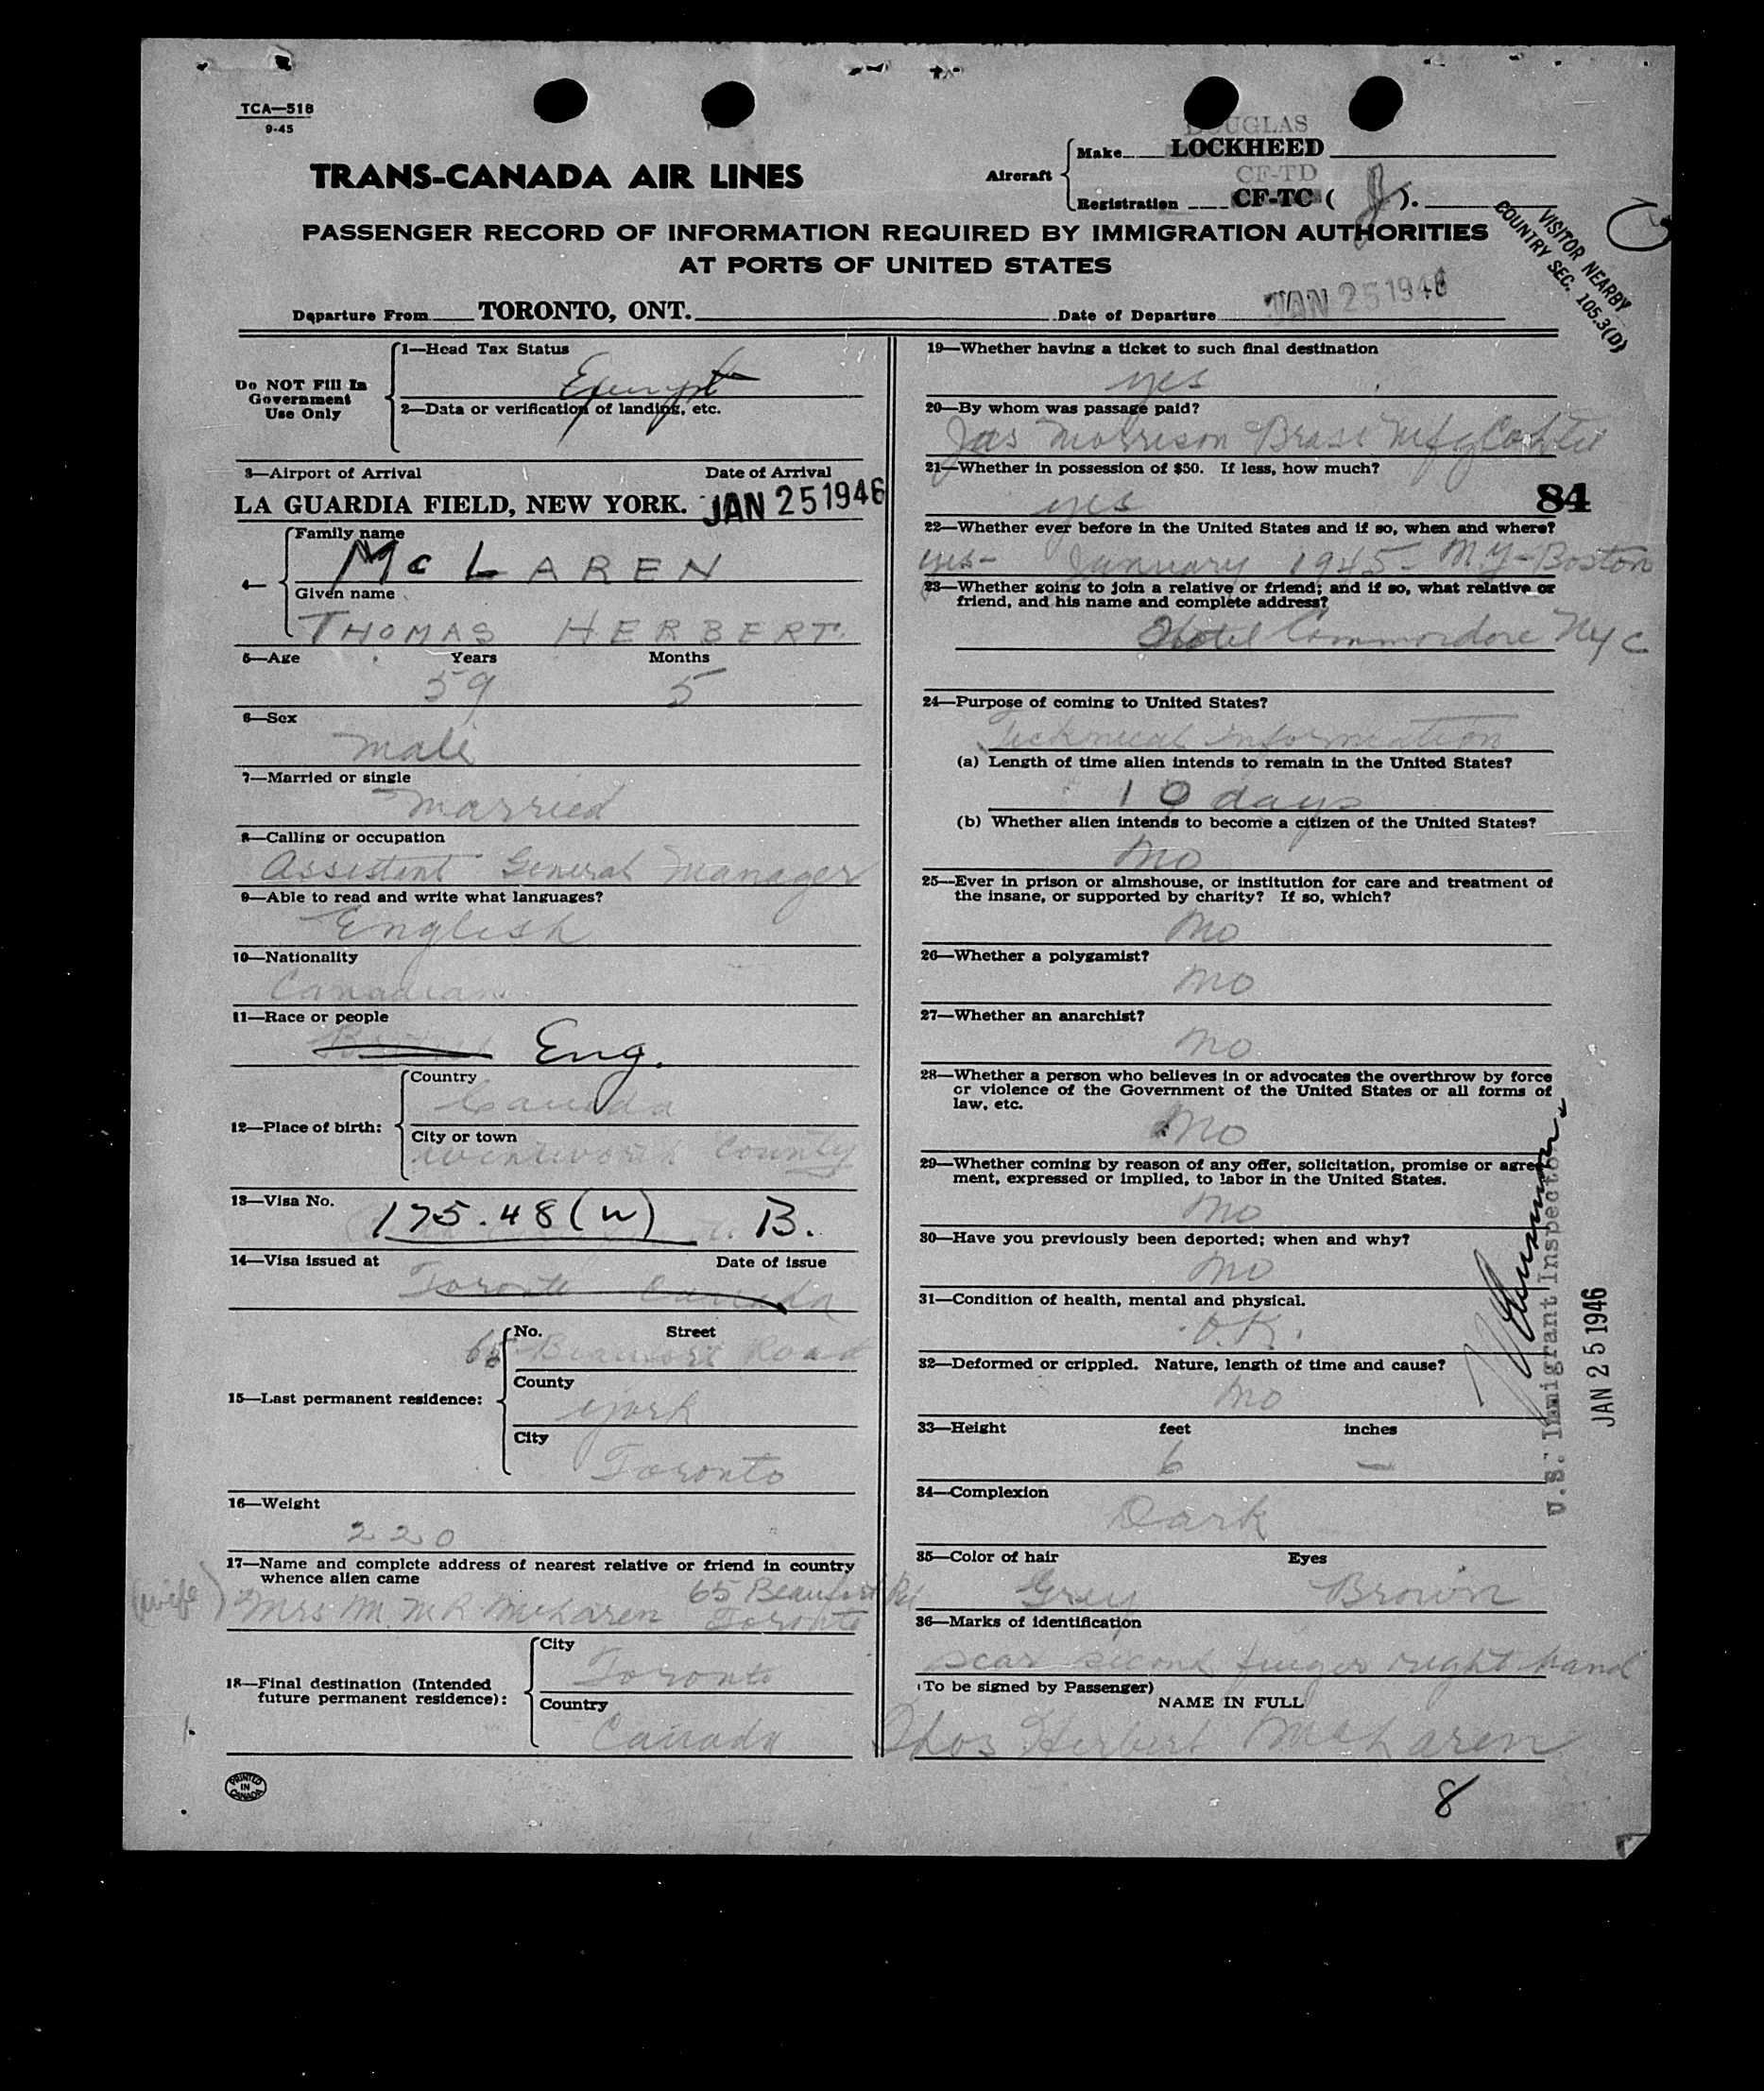 TCA—518
9-45
DOUGLAS
Make LOCKHEED
Aircraft
CF-TD
Registration CF-TC ( J ).
TRANS-CANADA AIR LINES
PASSENGER RECORD OF INFORMATION REQUIRED BY IMMIGRATION AUTHORITIES
AT PORTS OF UNITED STATES
VISITOR NEARBY
COUNTRY SEC. 105.3(D)
Departure From TORONTO, ONT. Date of Departure JAN 25 1946
Do NOT Fill In
Government
Use Only
1—Head Tax Status
Exempt
2—Data or verification of landing, etc.
3—Airport of Arrival Date of Arrival
LA GUARDIA FIELD, NEW YORK. JAN 25 1946
4—
Family name
McLAREN
Given name
THOMAS HERBERT
5—Age Years Months
59 5
6—Sex
Male
7—Married or single
Married
8—Calling or occupation
Assistent General Manager
9—Able to read and write what languages?
English
10—Nationality
Canadian
11—Race or people
Eng.
12—Place of birth:
Country
Canada
City or town
Wentworth County
13—Visa No.
175.48(w) B.
14—Visa issued at Date of issue
Toronto Canada
15—Last permanent residence:
No. Street
65 Beaufort Road
County
York
City
Toronto
16—Weight
220
17—Name and complete address of nearest relative or friend in country
whence alien came
(wife) Mrs M. McLaren 65 Beaufort Rd
Toronto
18—Final destination (Intended
future permanent residence):
City
Toronto
Country
Canada
PRINTED
IN
CANADA
19—Whether having a ticket to such final destination
yes
20—By whom was passage paid?
Jas Morrison Brass Mfg Co Ltd
21—Whether in possession of $50. If less, how much?
yes
84
22—Whether ever before in the United States and if so, when and where?
yes- January 1945- N.Y-Boston
23—Whether going to join a relative or friend; and if so, what relative or
friend, and his name and complete address?
Hotel Commordore NYC
24—Purpose of coming to United States?
Technical Information
(a) Length of time alien intends to remain in the United States?
10 days
(b) Whether alien intends to become a citizen of the United States?
No
25—Ever in prison or almshouse, or institution for care and treatment of
the insane, or supported by charity? If so, which?
No
26—Whether a polygamist?
No
27—Whether an anarchist?
No
28—Whether a person who believes in or advocates the overthrow by force
or violence of the Government of the United States or all forms of
law, etc.
No
29—Whether coming by reason of any offer, solicitation, promise or agree-
ment, expressed or implied, to labor in the United States.
No
30—Have you previously been deported; when and why?
No
31—Condition of health, mental and physical.
O.K.
32—Deformed or crippled. Nature, length of time and cause?
No
33—Height feet inches
6 —
34—Complexion
Dark
35—Color of hair Eyes
Grey Brown
36—Marks of identification
scar second finger right hand
(To be signed by Passenger)
NAME IN FULL
Thos Herbert McLaren
8
U.S. Immigrant Inspector
JAN 25 1946